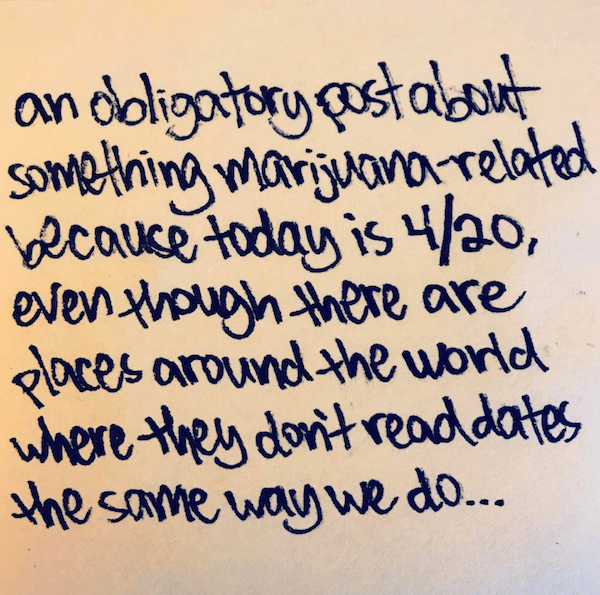 an obligatory post about
something marijuana-related
because today is 4/20,
even though there are
places around the world
where they don't read dates
the same way we do...